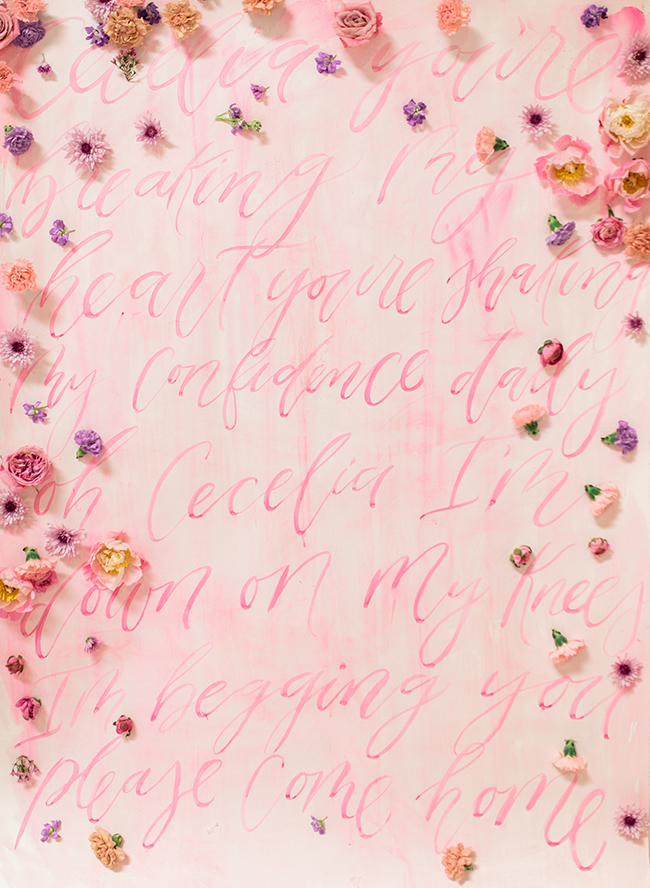 Cecelia you're
breaking my
heart you're shaking
my confidence daily
oh Cecelia I'm
down on my knees
I'm begging you
please come home